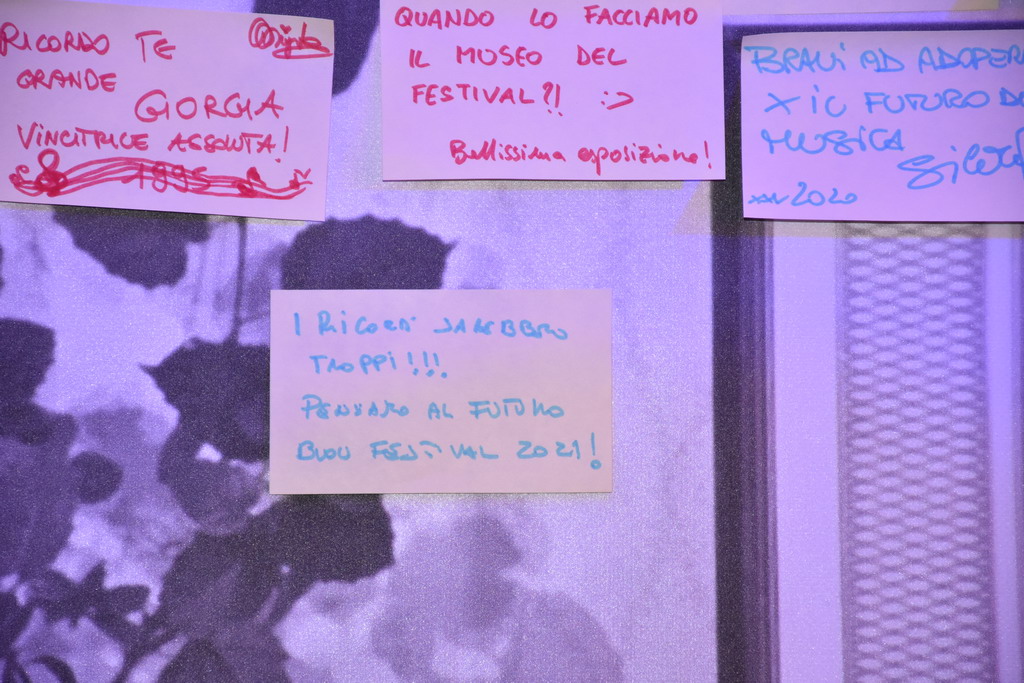 RICORDO TE
GRANDE
GIORGIA
VINCITRICE ASSOLUTA!
1995
QUANDO LO FACCIAMO
IL MUSEO DEL
FESTIVAL?!! :->
Bellissima esposizione!
BRAVI AD ADOPER
X IL FUTURO D
MUSICA
2020
I RICORDI SAREBBERO
TROPPI!!!
PENSARO AL FUTURO
BUON FESTIVAL 2021!